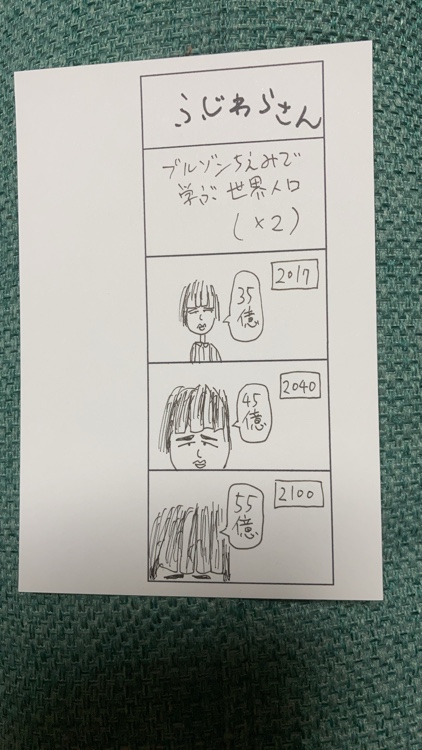 ふじわらさん
ブルゾンちえみで
学ぶ世界人口
(×2)
2017
35
億
2040
45
億
2100
55
億